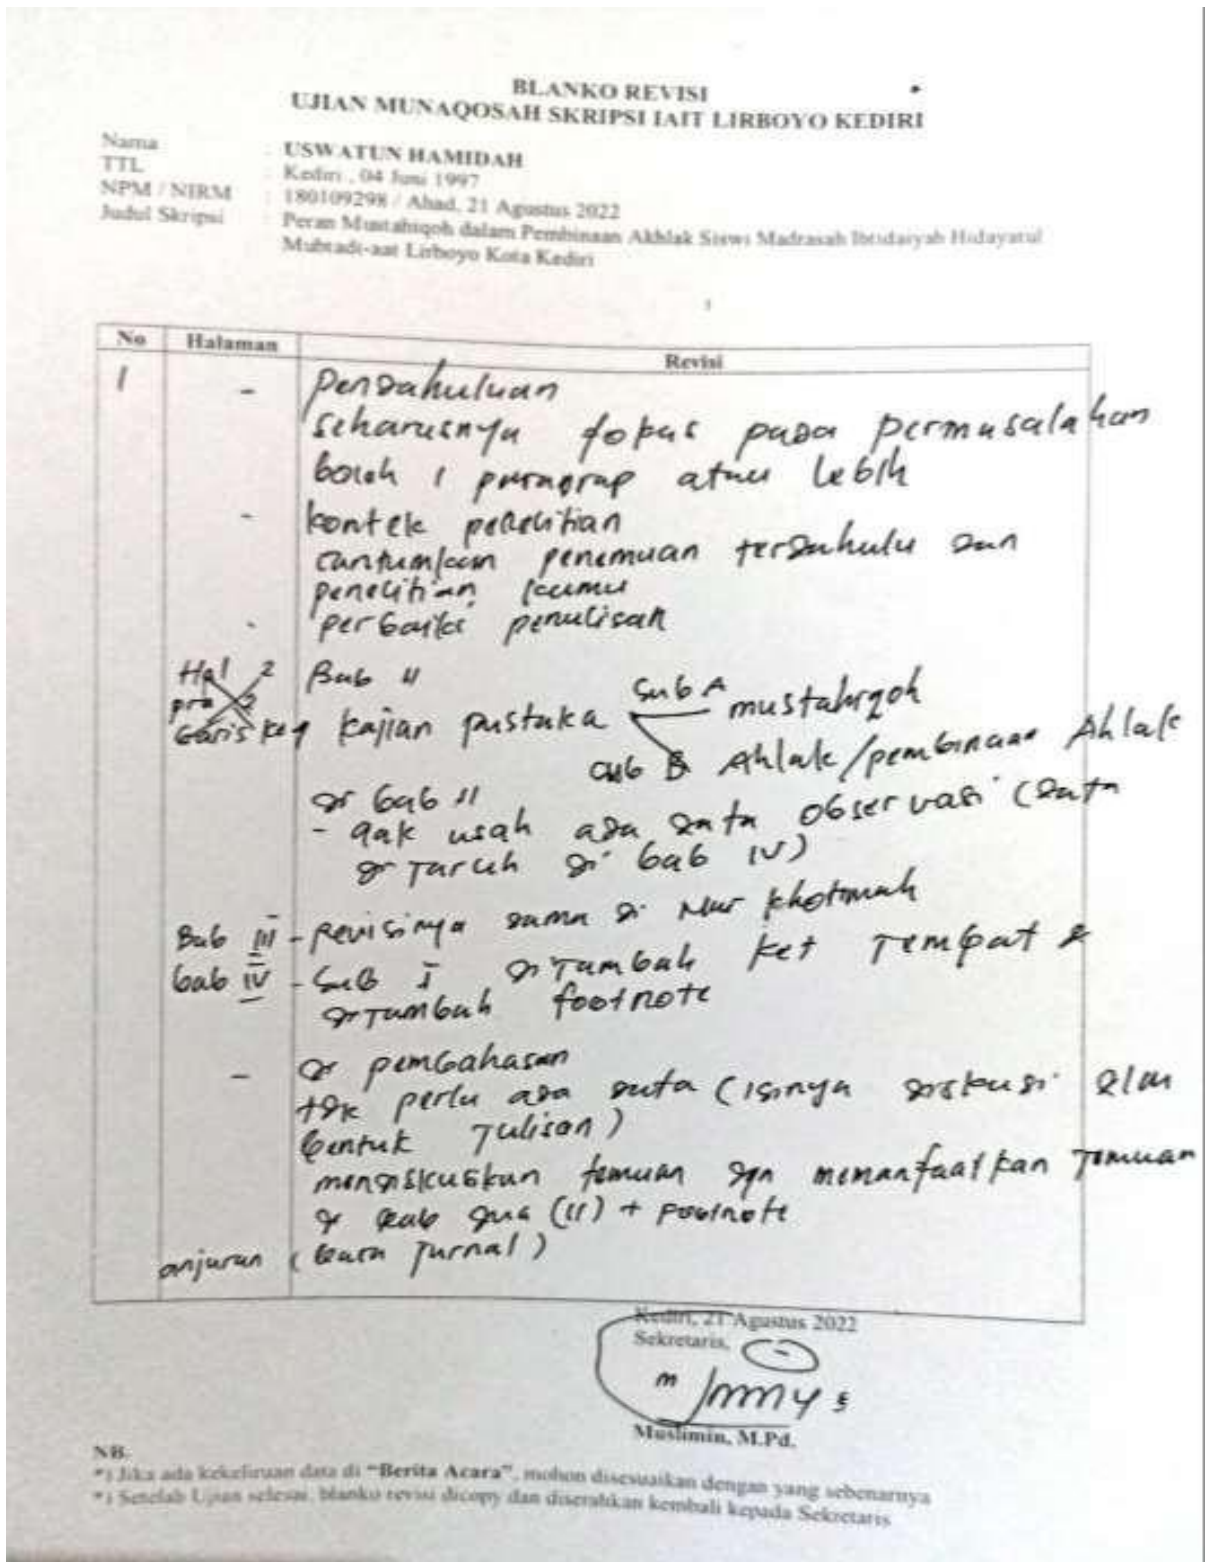 BLANKO REVISI
UJIAN MUNAQOSAH SKRIPSI IAIT LIRBOYO KEDIRI
Nama : USWATUN HAMIDAH
TTL : Kediri , 04 Juni 1997
NPM / NIRM : 180109298 / Ahad, 21 Agustus 2022
Judul Skripsi : Peran Mustahiqoh dalam Pembinaan Akhlak Siswi Madrasah Ibtidaiyah Hidayatul
Mubtadi-aat Lirboyo Kota Kediri
No Halaman Revisi
1 - pendahuluan
seharusnya fokus pada permasalahan
boleh 1 paragrap atau lebih
- kontek penelitian
cantumkan penemuan terdahulu dan
penelitian kamu
- perbaiki penulisan
Hal 2 Bab II
pra 2 Sub A mustahiqoh
Garis kajian pustaka
sub B Ahlak/pembinaan Ahlak
di bab II
- gak usah ada data observasi (data
di taruh di bab IV)
Bab III - revisinya sama di Nur Khotimah
bab IV - Sub I ditambah ket tempat &
ditambah footnote
- di pembahasan
tdk perlu ada data (isinya diskusi dlm
bentuk tulisan)
mendiskusikan temuan dgn memanfaatkan temuan
di bab dua (II) + footnote
anjuran (baca jurnal)
Kediri, 21 Agustus 2022
Sekretaris,
Muslimin, M.Pd.
NB.
*) Jika ada kekeliruan data di “Berita Acara”, mohon disesuaikan dengan yang sebenarnya
*) Setelah Ujian selesai, blanko revisi dicopy dan diserahkan kembali kepada Sekretaris